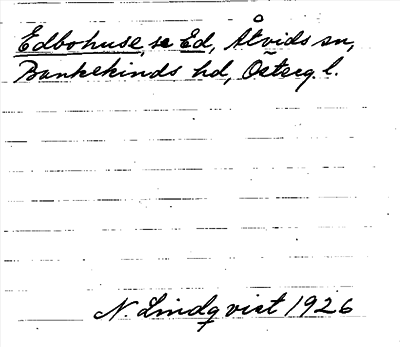 Edbohuse, se Ed, Åtvids sn,
Bankekinds hd, Österg. l.
N. Lindqvist 1926